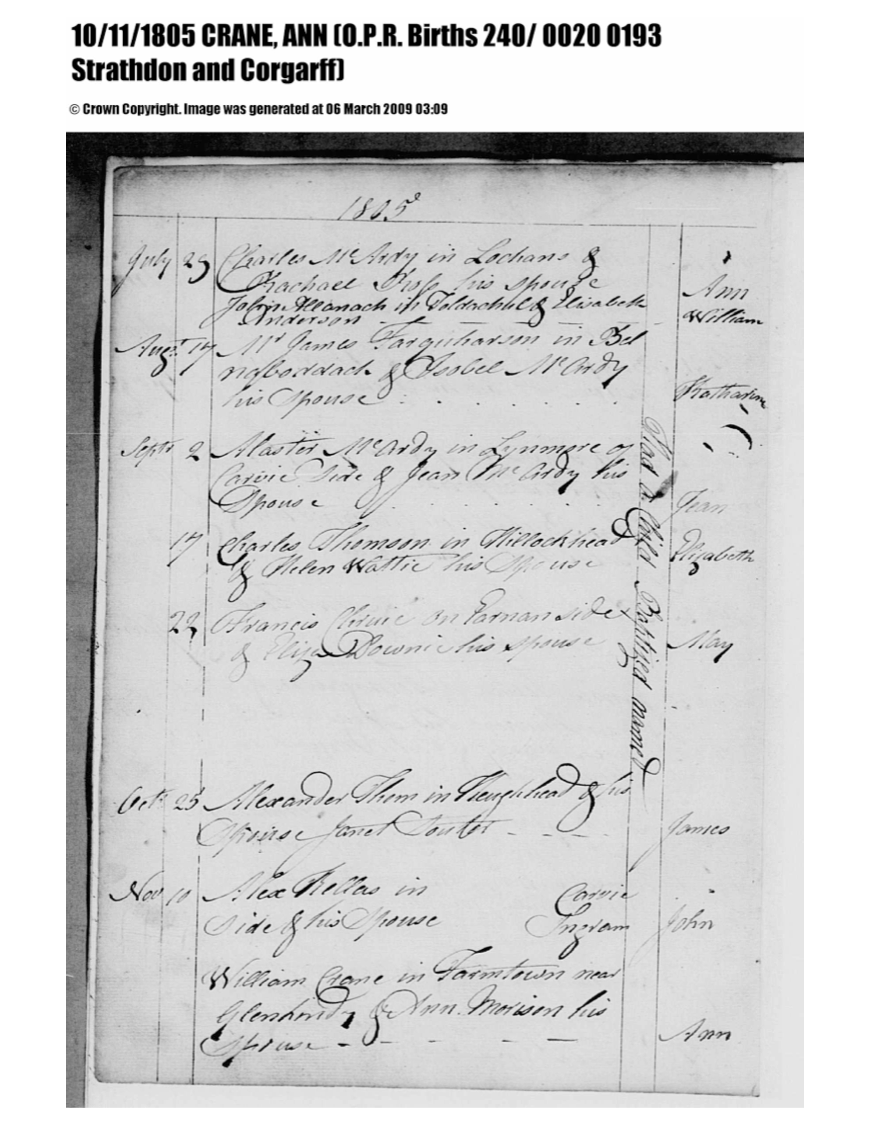 10/11/1805 CRANE, ANN (O.P.R. Births 240/ 0020 0193
Strathdon and Corgarff)
© Crown Copyright. Image was generated at 06 March 2009 03:09
1805
July 29 Charles McArdy in Lochans &
Rachael his spouse Ann
John Allanach in & Elizabeth William
Anderson
Augt 17 Mr James Farquharson in Bel
nabodach & Isobel McArdy
his Spouse Katharine
Septr 2 Alaster McArdy in Lynmore of
Carvie Side & Jean McArdy his
Spouse Jean
17 Charles Thomson in Hillockhead
& Helen Wattie his Spouse Elizabeth
22 Francis on side
& Eliza Downie his spouse May
Had a Child Baptized named
Oct. 25 Alexander Thom in & his
Spouse Janet Souter James
Nov 10 Alex Kellas in Carvie
Side & his Spouse Ingram John
William Crane in Farmtown near
& Ann Morison his
Spouse Ann